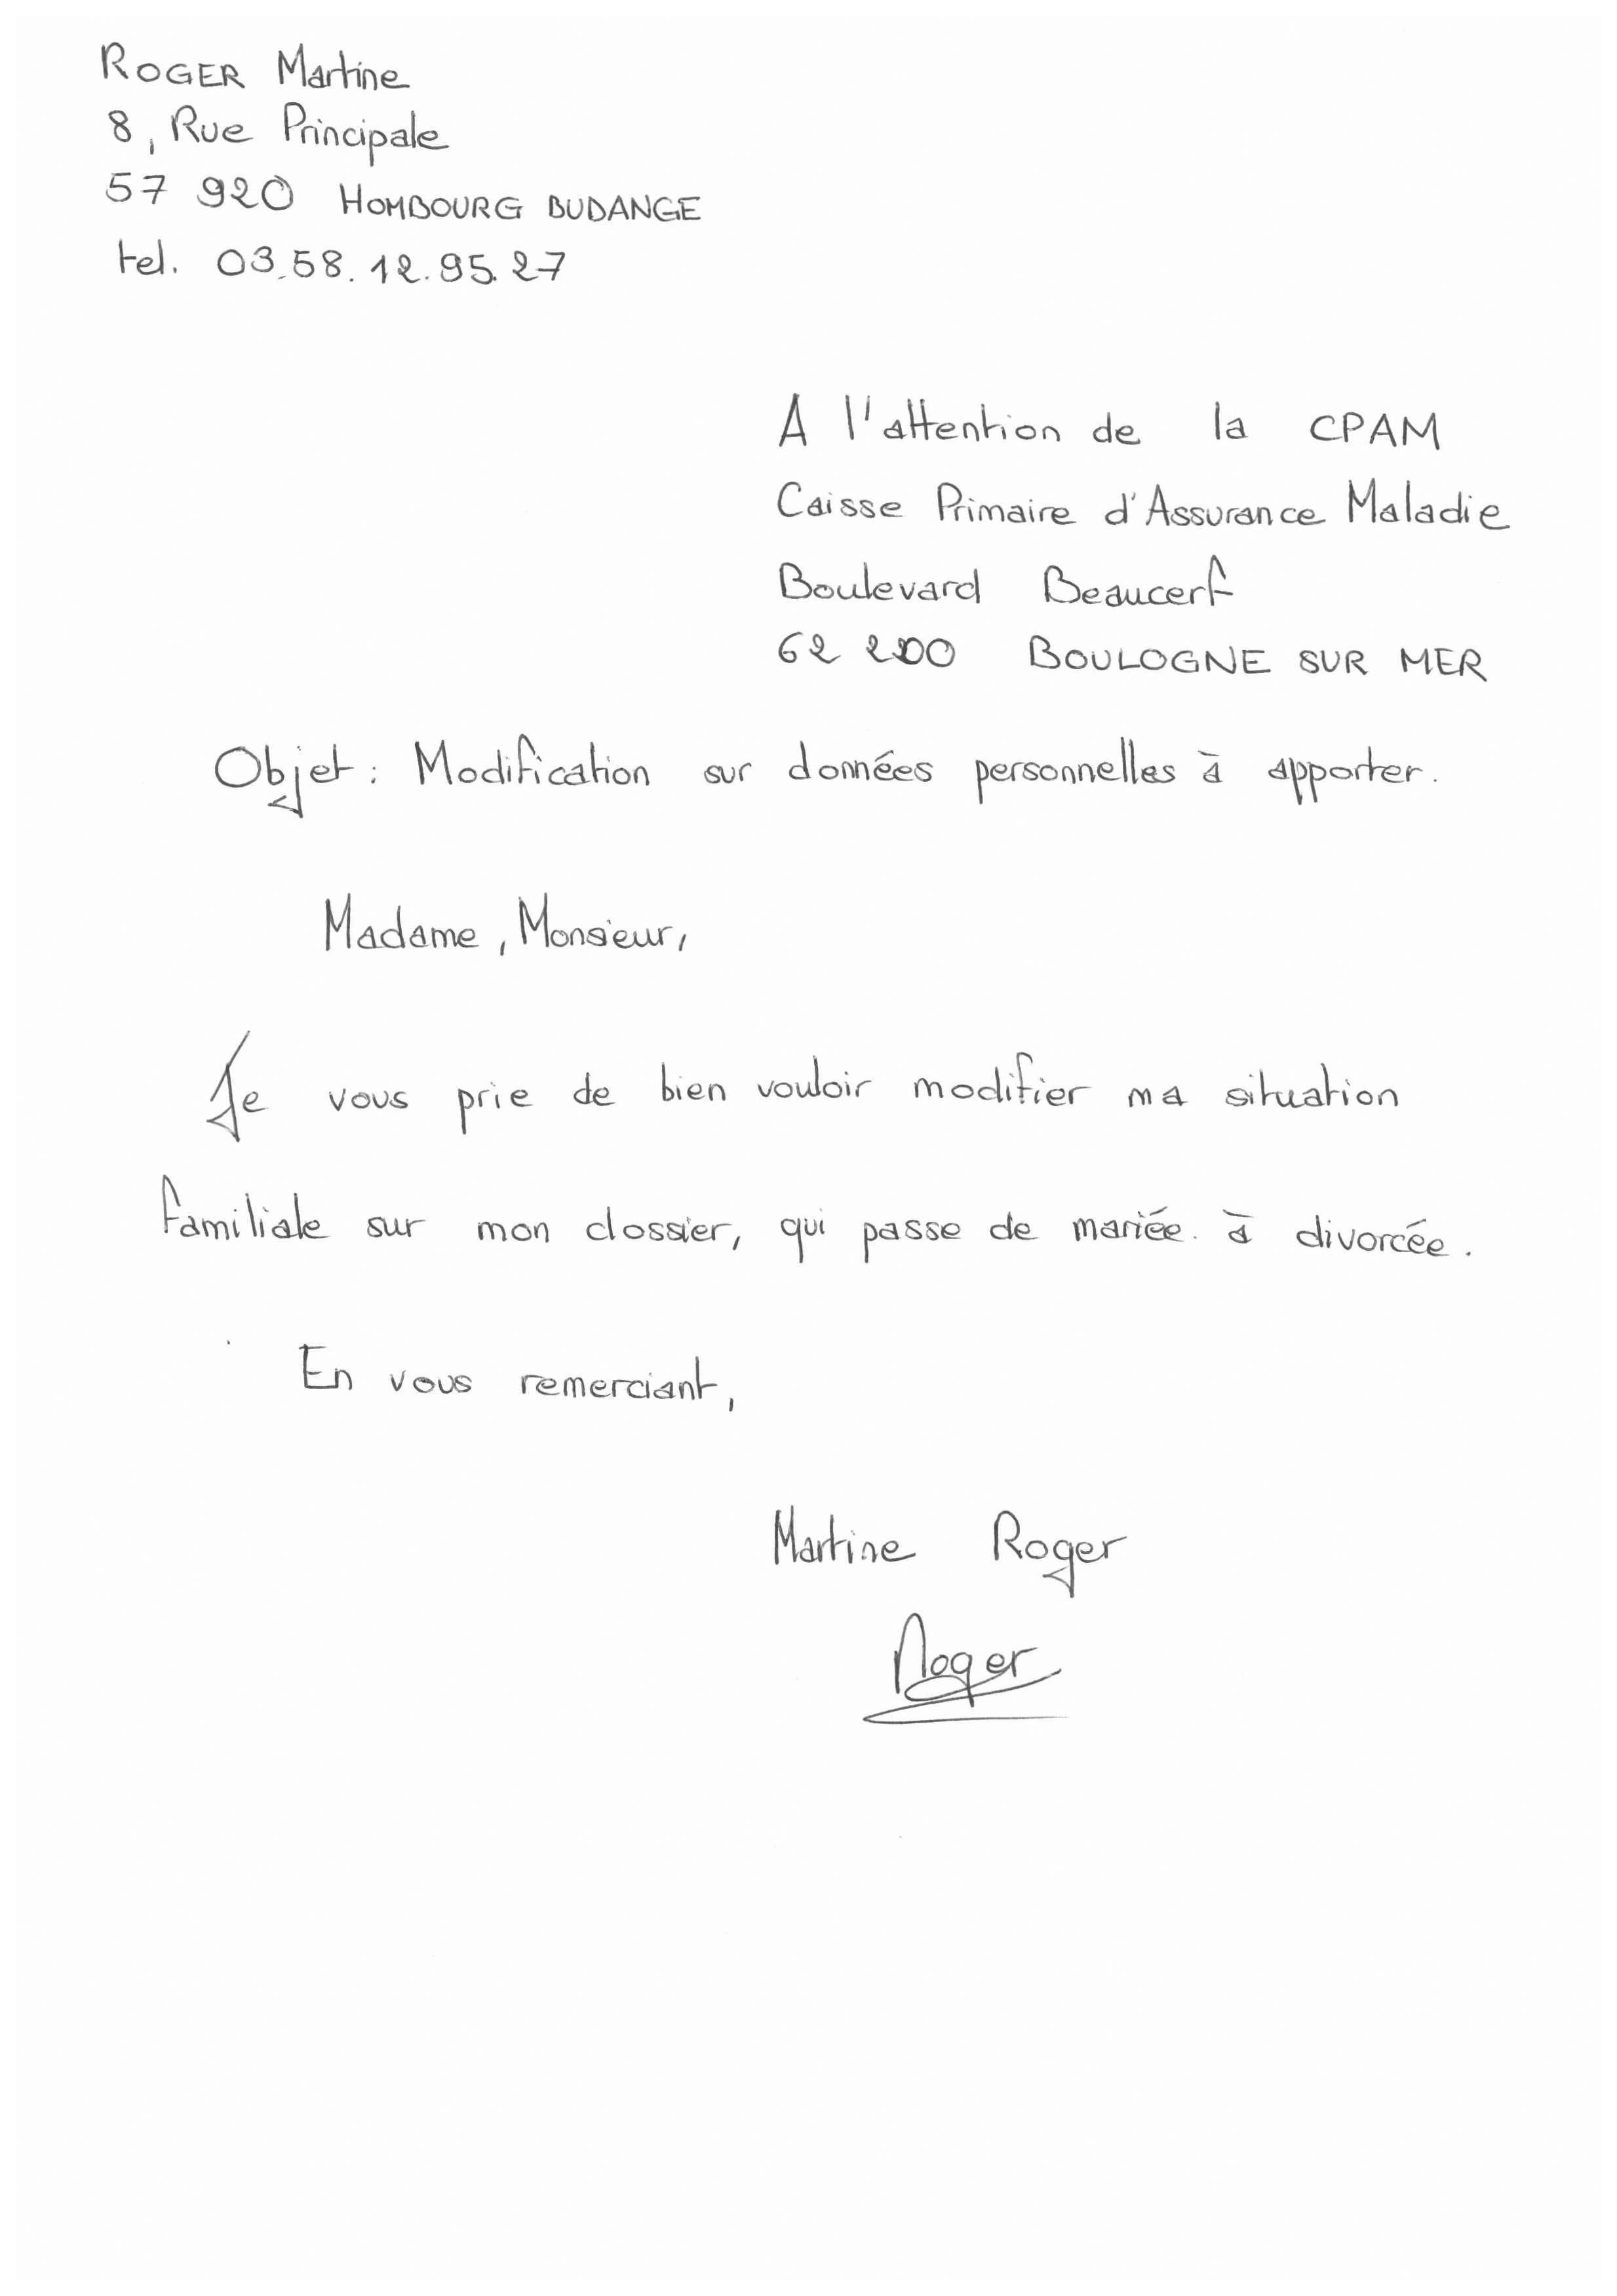 ROGER Martine
8, Rue Principale
57 920 HOMBOURG BUDANGE
tel. 03.58.12.95.27
A l'attention de la CPAM
Caisse Primaire d'Assurance Maladie
Boulevard Beaucerf
62 200 BOULOGNE SUR MER
Objet : Modification sur données personnelles à apporter.
Madame, Monsieur,
Je vous prie de bien vouloir modifier ma situation
familiale sur mon dossier, qui passe de mariée à divorcée.
En vous remerciant,
Martine Roger
Roger